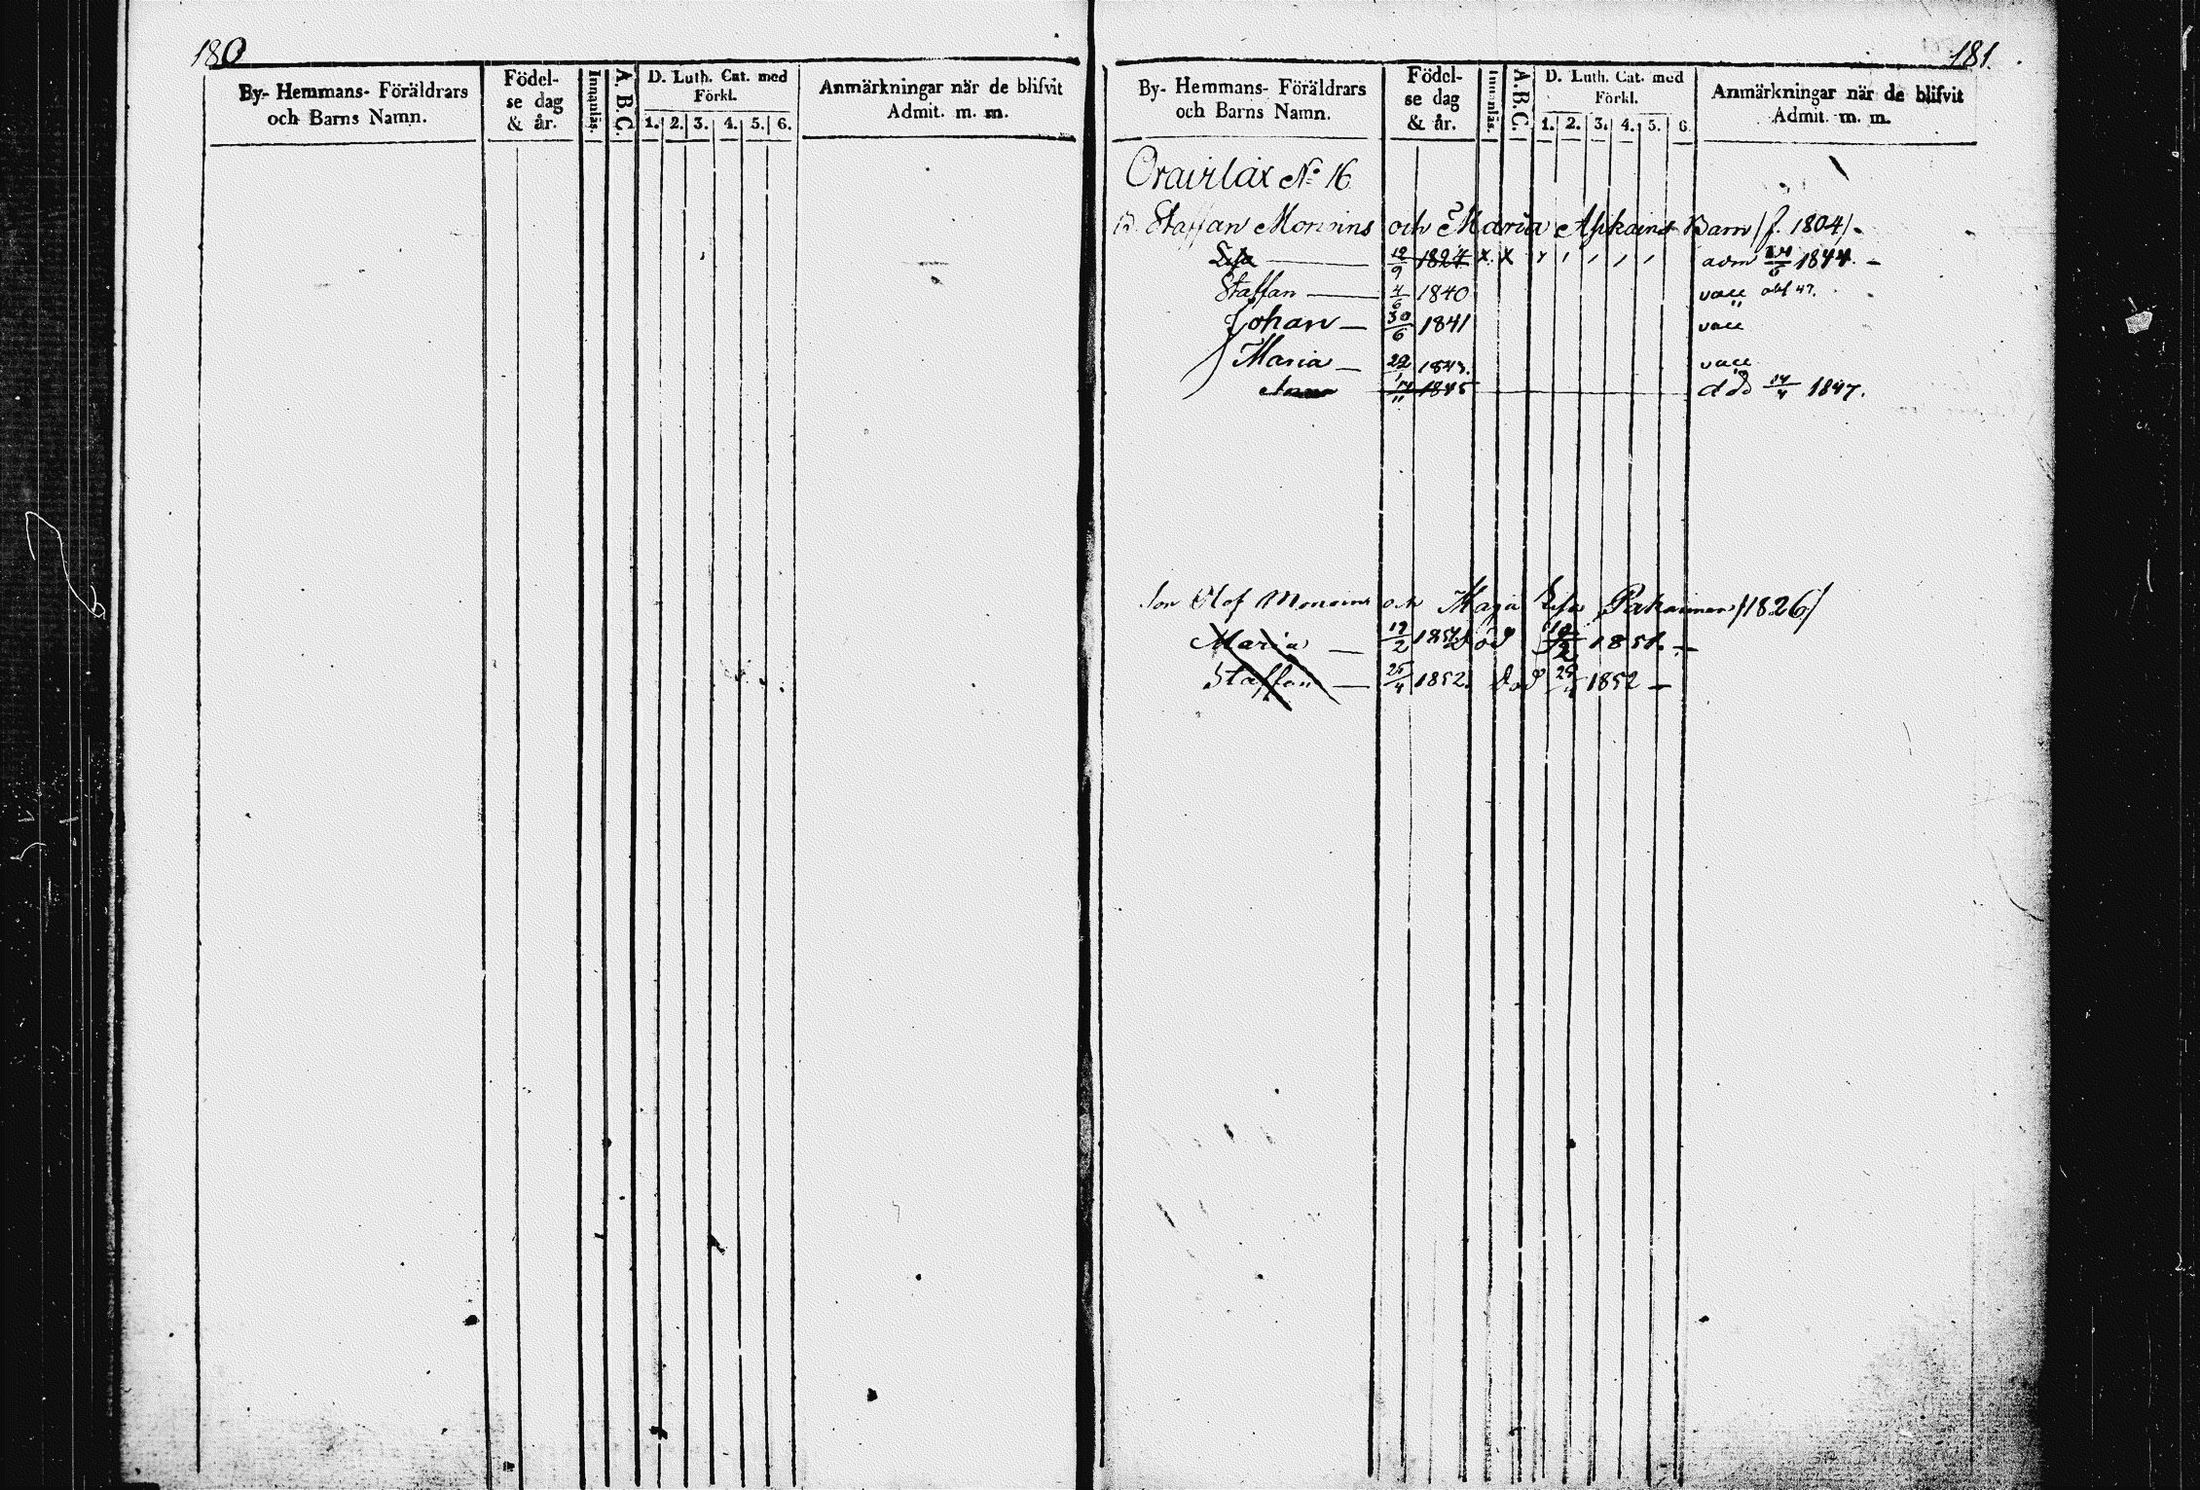 180
By- Hemmans- Föräldrars och Barns Namn.
Födel-se dag & år.
Innanläs.
A. B. C.
D. Luth. Cat. med Förkl.
1. 2. 3. 4. 5. 6.
Anmärkningar när de blifvit Admit. m. m.
181.
By- Hemmans- Föräldrars och Barns Namn.
Födel-se dag & år.
Innanläs.
A. B. C.
D. Luth. Cat. med Förkl.
1. 2. 3. 4. 5. 6.
Anmärkningar när de blifvit Admit. m. m.
Oravilax No 16
Staffan Moninns och Maria Asikains Barn /f. 1804/
Lisa 1824 x x adm 1844. –
Staffan — 4/6 1840 vacc
Johan — 30/6 1841 vacc
Maria — 22/1 1843. vacc
Anna 1845 död 14/4 1847.
Son Olof Moninns och Maja Lisa Pakarinen /1826/
Maria — 17/2 1851 död 1851. –
Staffan — 25/4 1852. död 1852 –